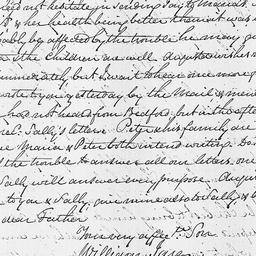 not hesitate in sending Jay to Maria's
& her health being better than it was
ably be affected by the trouble he may g
the children are well. Augustus wishes
immediately but I want to have one more
write to you yesterday by the Mail &
had not heard from Bedford, but in the after
rec'd Sally's letters. Peter & his family are
Maria & Peter both intend writing. Do
the trouble to answer all our letters, one
Sally will answer every purpose. Augus
to you & Sally, give mine also to Sally, &
dear Father
Your very affec't Son
William Jay